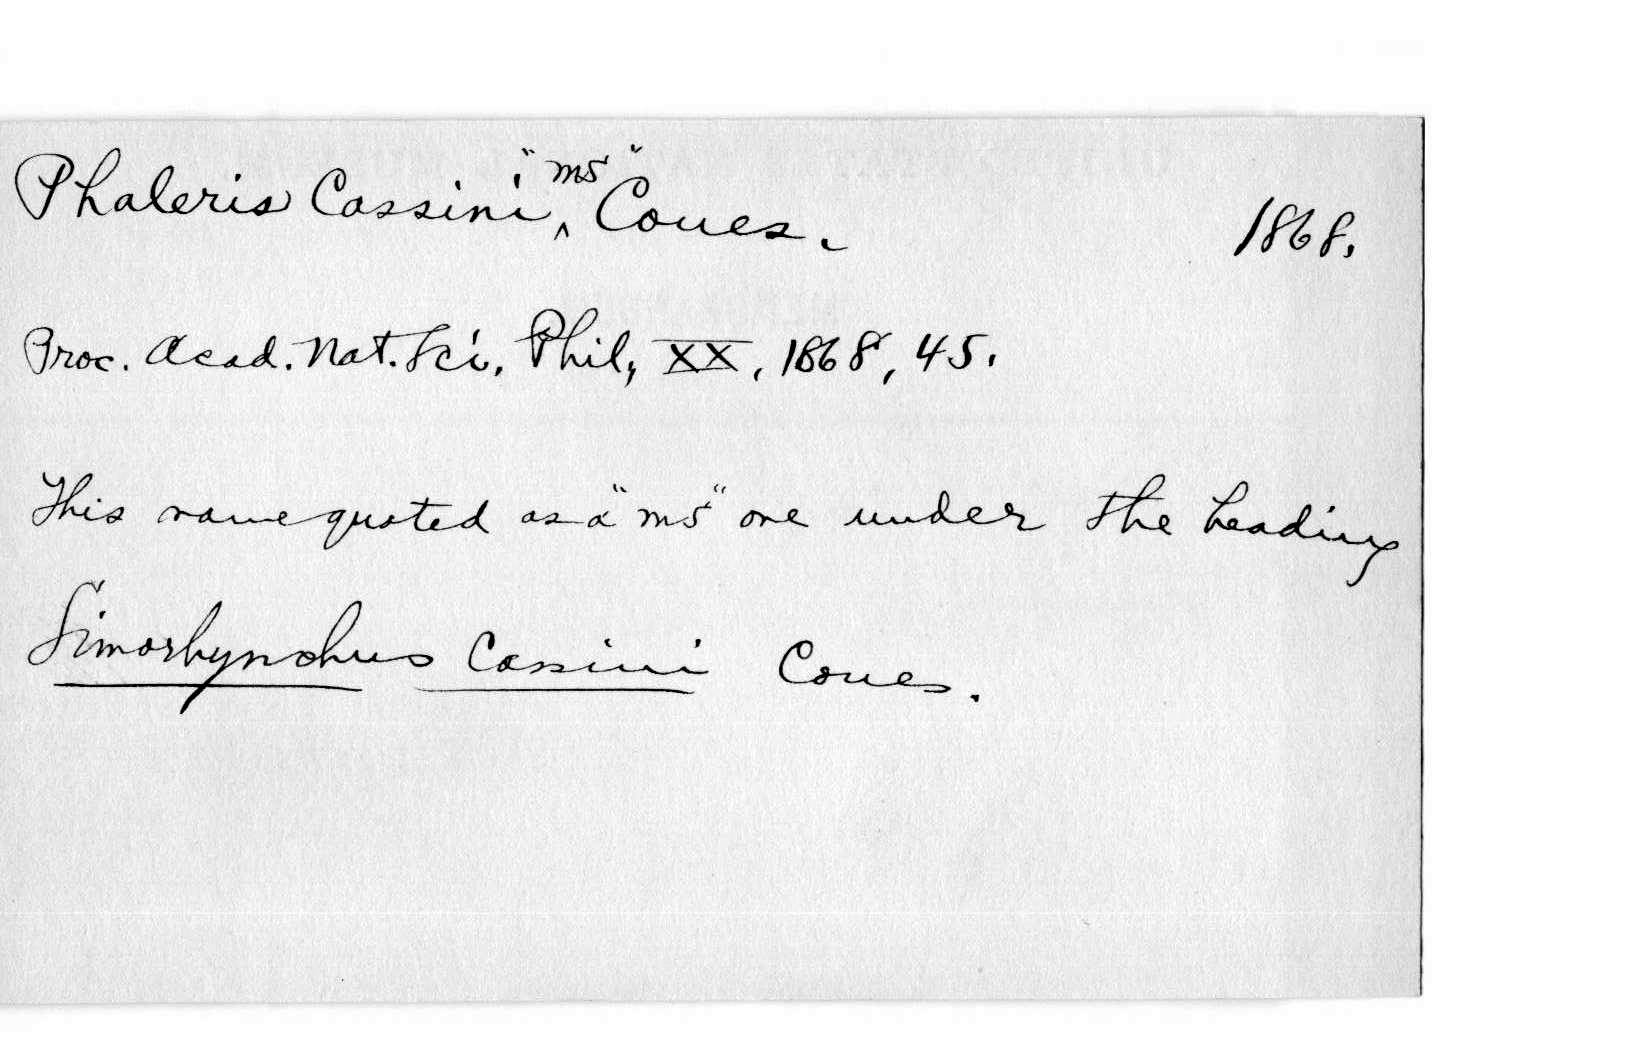 Phaleris Cassini, "ms" Coues. 1868.
Proc. Acad. Nat. Sci. Phil, XX, 1868, 45.
This name quoted as a "ms" one under the heading
Simorhynchus Cassini Coues.